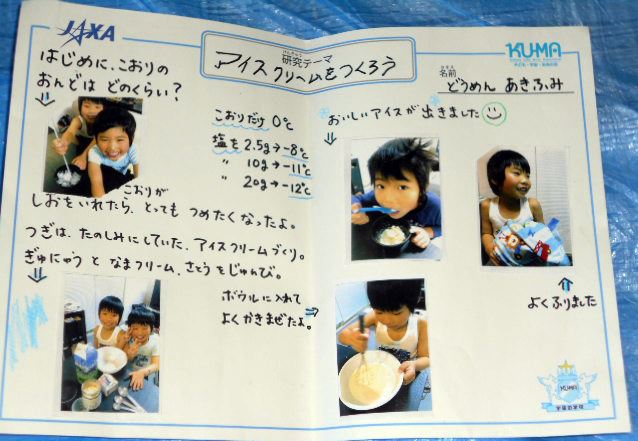 JAXA
けんきゅう
研究テーマ
アイスクリームをつくろう
KU-MA
なまえ
名前
どうめん あきふみ
はじめに、こおりの
おんどは どのくらい?
こおりだけ 0℃
塩を 2.5g→-8℃
〃 10g→-11℃
〃 20g→-12℃
こおりが
しおをいれたら、とっても つめたくなったよ。
つぎは、たのしみにしていた、アイスクリームづくり。
ぎゅにゅう と なまクリーム、さとうをじゅんび。
ボウルに入れて
よくかきまぜたよ。
おいしいアイスが出きました
よくふりました
KUMA
宇宙の学校